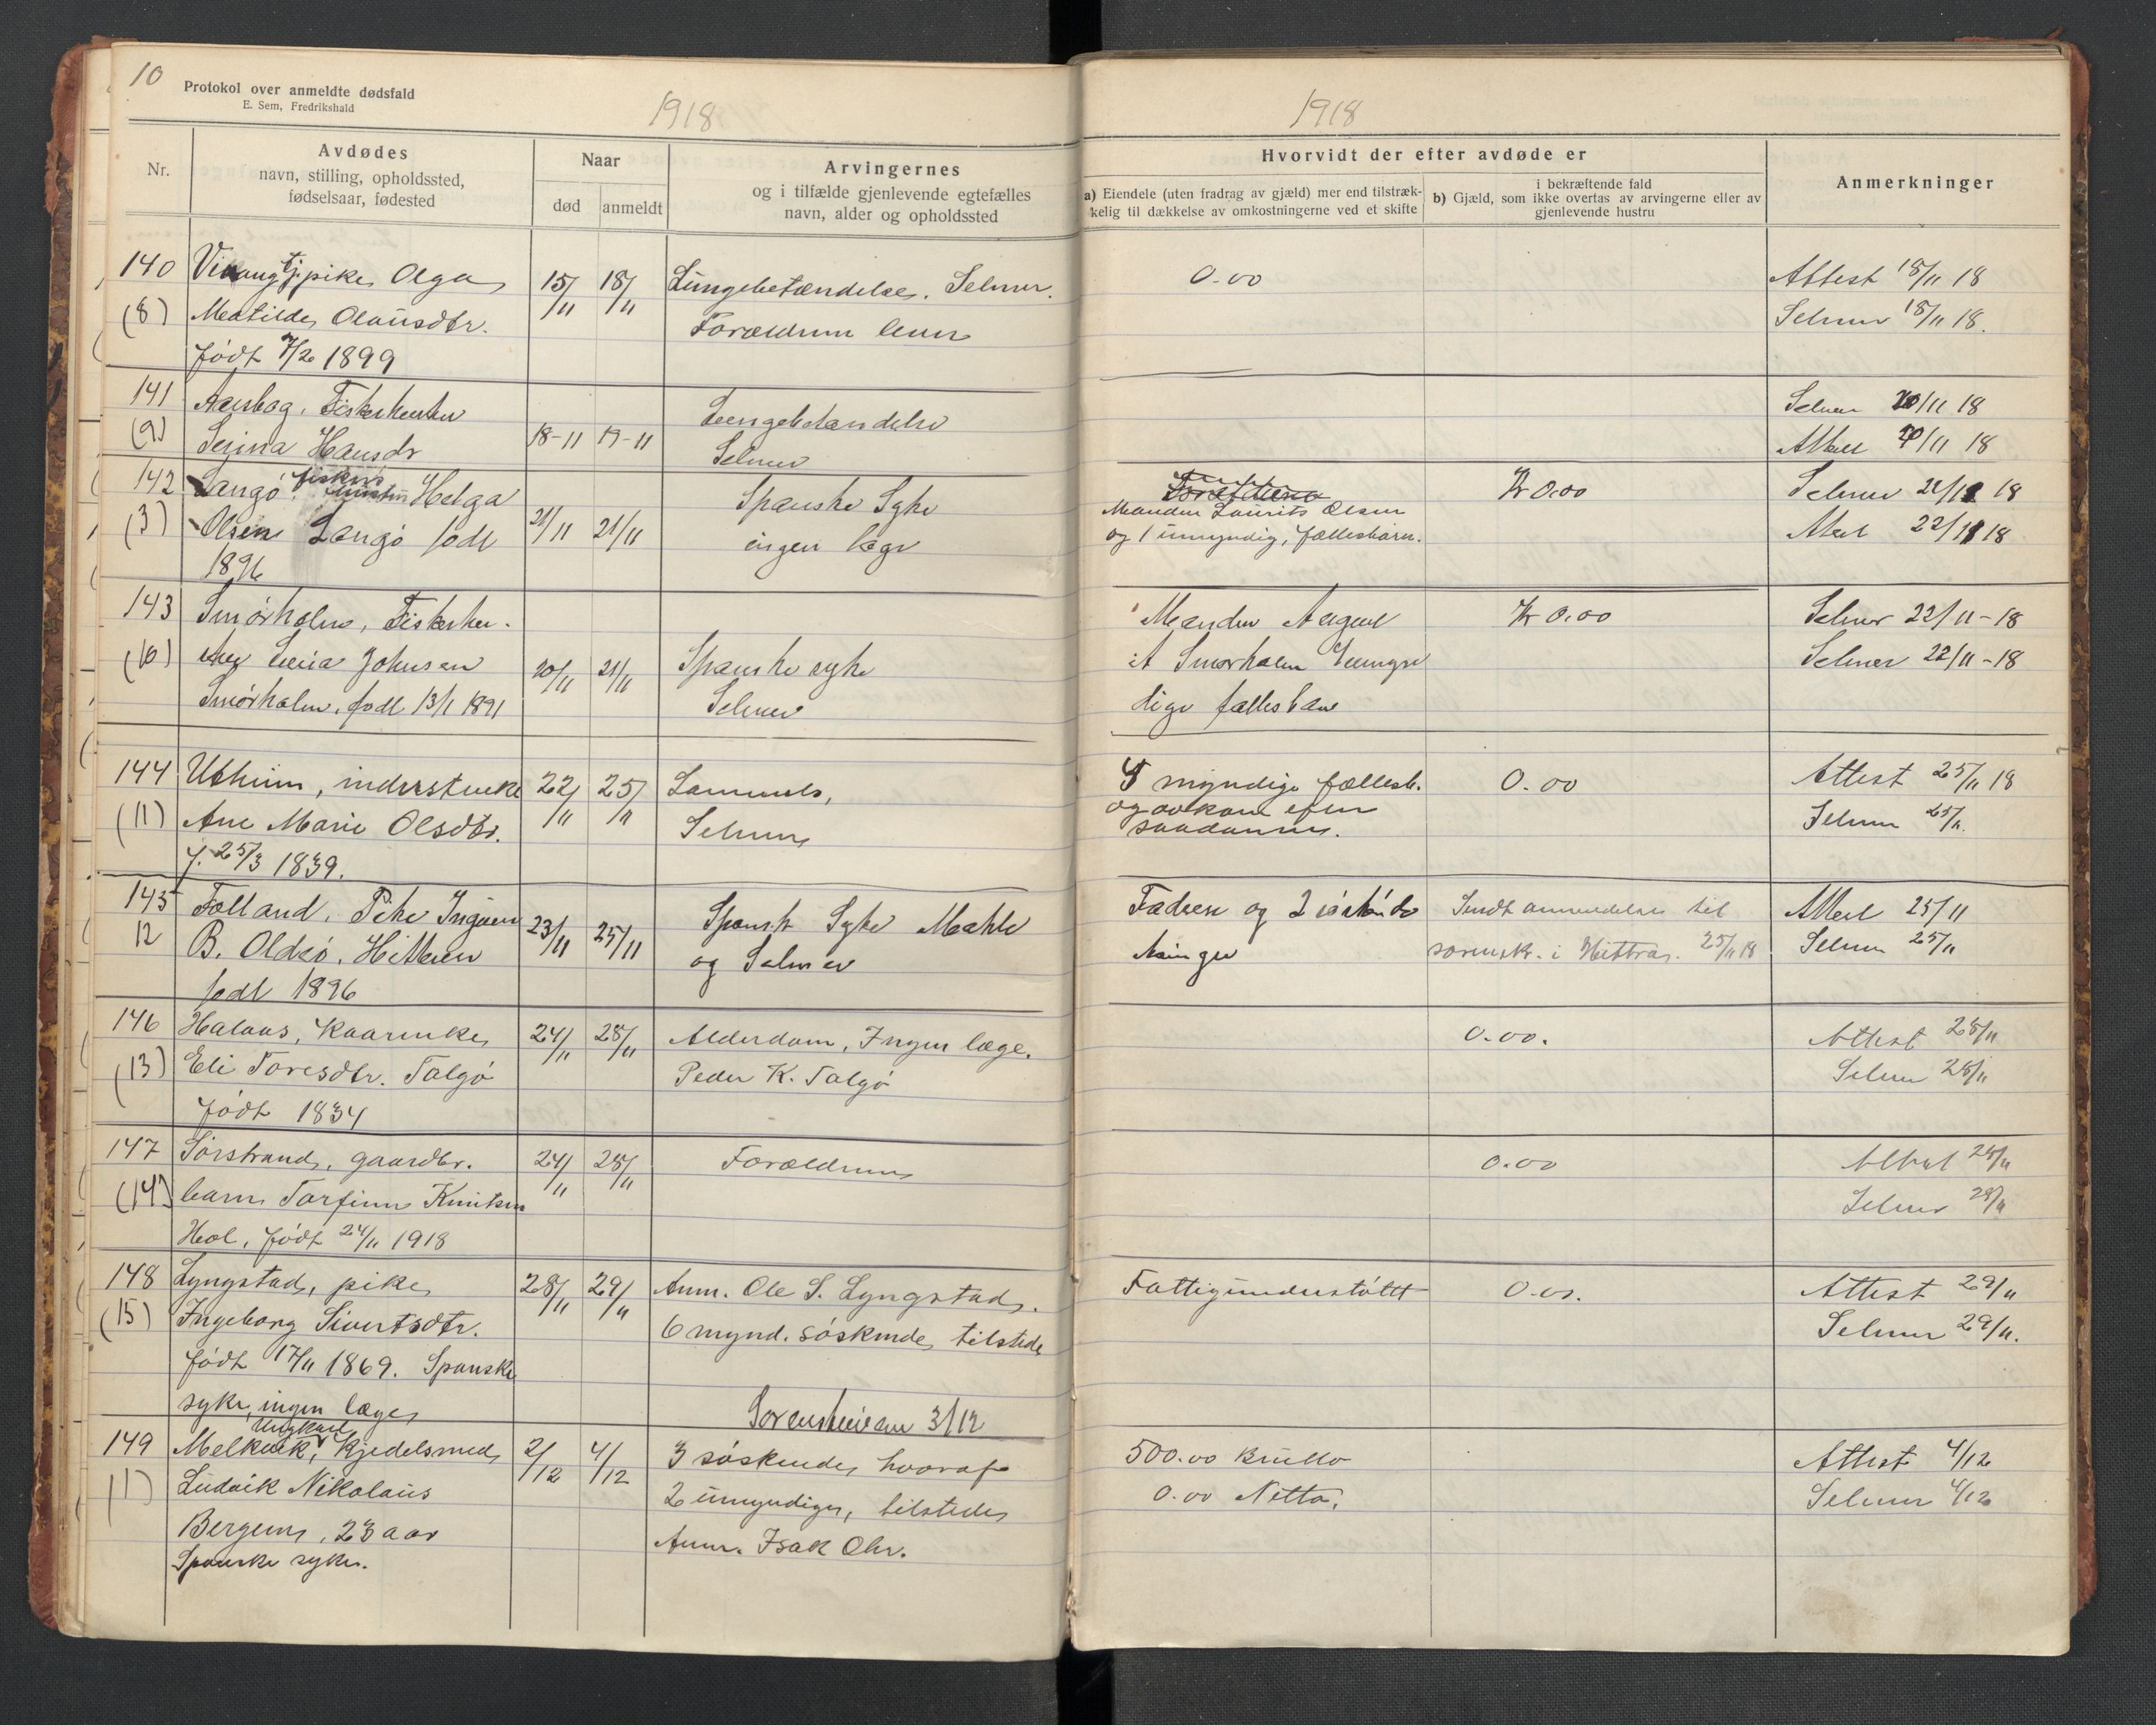 10
Protokol over anmeldte dødsfald
E. Sem, Fredrikshald
1918
Nr.
Avdødes
navn, stilling, opholdssted,
fødselsaar, fødested
Naar
død
anmeldt
Arvingernes
og i tilfælde gjenlevende egtefælles
navn, alder og opholdssted
140 tj. pike, Olga 15/11 18/11 Lungebetændelse. Selmer.
(8) Matilde Olausdtr. Forældrene
født 7/2 1899
141 Fiskerkone Lungebetændelse
(9) Serina Hansdr 18-11 19-11 Selmer
142 Langø, fiskers Helga Spanske Syke
(3) Olsen Langø født 21/11 21/11 ingen læge
1896
143 Smørholm, Fisker
(10) Johnsen 20/11 21/11 Spanske syke
Smørholm, født 13/1 1891 Selmer
144 Utheim, inderstenke 22/11 25/11
(11) Ane Marie Olsdtr. Selmer
f. 25/3 1839.
145 Folland, Pike 23/11 25/11 Spansk Syke
12 B. Oldsø, Hitteren og Selmer
født 1896
146 Halaas, Kaarenke, 24/11 28/11 Alderdom, Ingen læge.
(13) Eli Toresdtr. Talgø Peder K. Talgø
født 1834
147 Sørstrand, gaardbr. 24/11 28/11 Forældrene
(14) barn Torfinn Knutsen
Hol, født 24/11 1918
148 Lyngstad, pike 28/11 29/11 Anm. Ole S. Lyngstad.
(15) Ingeborg Sivertsdtr. 6 mynd. søskende, tilstede
født 17/11 1869. Spanske
syke, ingen læge
Sorenskriveren 3/12
Ungkarl
149 Kjedelsmed 2/12 4/12 3 søskende, hvoraf
(1) Ludvik Nikolaus 2 umyndige, tilstede
23 aar Anm. Isak Chr.
Spanske syke.
1918
Hvorvidt der efter avdøde er
a) Eiendele (uten fradrag av gjæld) mer end tilstræk-
kelig til dækkelse av omkostningerne ved et skifte
b) Gjæld, som
i bekræftende fald
ikke overtas av arvingerne eller av
gjenlevende hustru
Anmerkninger
0.00 Attest 18/11 18
Selmer 18/11 18.
Selmer 20/11 18
Attest 20/11 18
Kr 0.00 Selmer 22/11 18
Manden Laurits Olsen
og 1 umyndig, fællesbarn. Attest 22/11 18
Manden August Kr 0.00 Selmer 22/11-18
A Smørholm Selmer 22/11-18
dige fællesbarn
myndige fællesb. 0.00 Attest 25/11 18
saadanne. Selmer 25/11
Faderen og 2 Sendt anmeldelse til Attest 25/11
sorensk. i Hittra. 25/11 18 Selmer 25/11
0.00. Attest 28/11
Selmer 28/11
0.00 Attest 28/11
Selmer 28/11
Fattigunderstøttt 0.00. Attest 29/11
Selmer 29/11.
500.00 Brutto Attest 4/12
0.00 Netto. Selmer 4/12